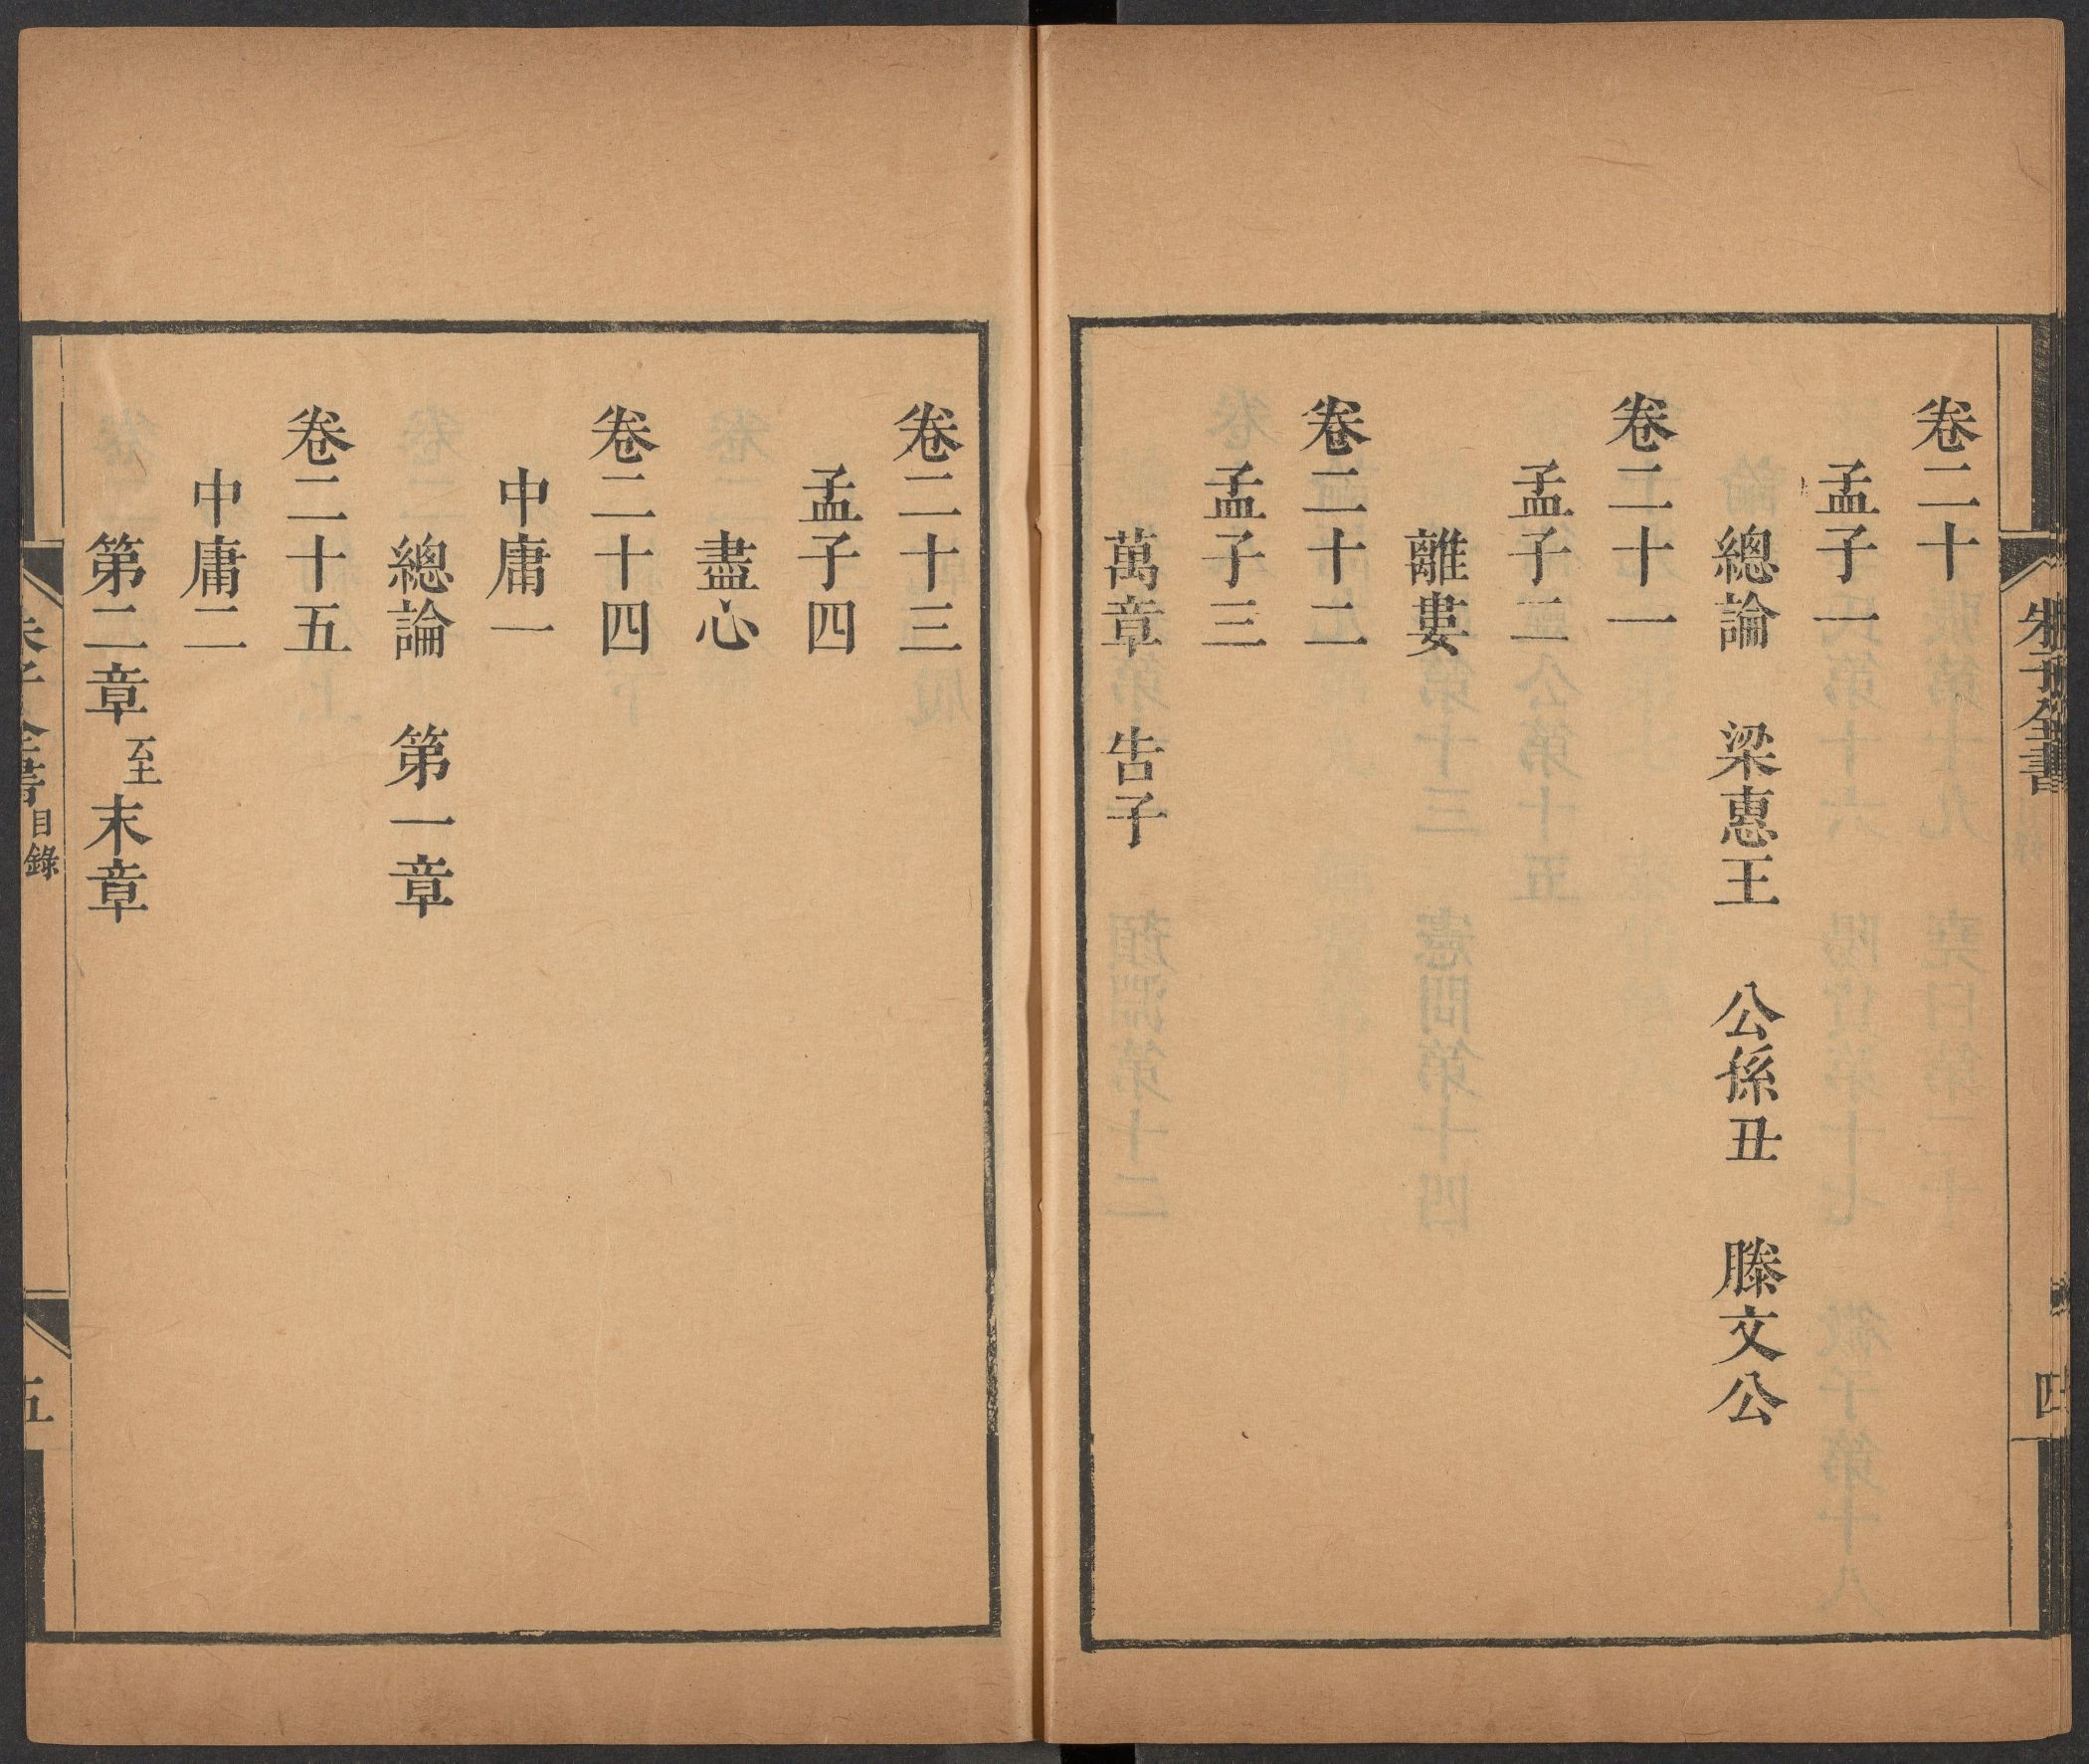 朱子全書
四
卷二十
孟子一
總論　梁惠王　公孫丑　滕文公
卷二十一
孟子二
離婁
卷二十二
孟子三
萬章　告子
卷二十三
孟子四
盡心
卷二十四
中庸一
總論　第一章
卷二十五
中庸二
第二章至末章
朱子全書 目錄
五